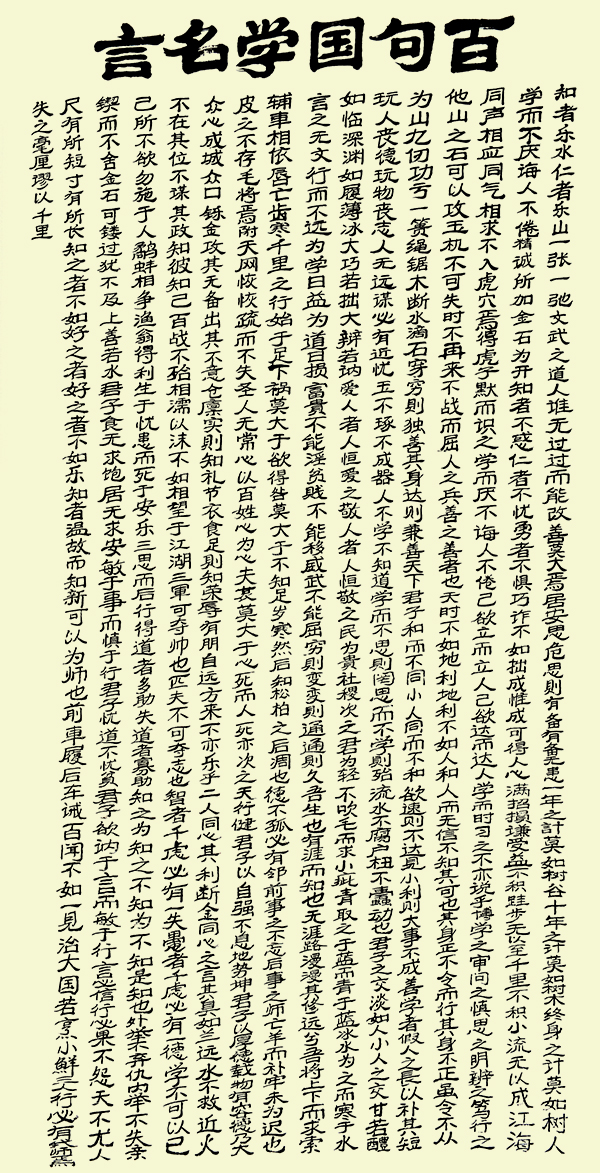 百句国学名言
知者乐水仁者乐山一张一弛文武之道人谁无过过而能改善莫大焉居安思危思则有备有备无患一年之计莫如树谷十年之计莫如树木终身之计莫如树人
学而不厌诲人不倦精诚所加金石为开知者不惑仁者不忧勇者不惧巧诈不如拙成惟成可得人心满招损谦受益不积跬步无以至千里不积小流无以成江海
同声相应同气相求不入虎穴焉得虎子默而识之学而不厌诲人不倦己欲立而立人己欲达而达人学而时习之不亦说乎博学之审问之慎思之明辨之笃行之
他山之石可以攻玉机不可失时不再来不战而屈人之兵善之善者也天时不如地利地利不如人和人而无信不知其可也其身正不令而行其身不正虽令不从
为山九仞功亏一篑绳锯木断水滴石穿穷则独善其身达则兼善天下君子和而不同小人同而不和欲速则不达见小利则大事不成善学者假人之长以补其短
玩人丧德玩物丧志人无远谋必有近忧玉不琢不成器人不学不知道学而不思则罔思而不学则殆流水不腐户枢不蠹动也君子之交淡如水小人之交甘若醴
如临深渊如履薄冰大巧若拙大辨若讷爱人者人恒爱之敬人者人恒敬之民为贵社稷次之君为轻不吹毛而求小疵青取之于蓝而青于蓝冰水为之而寒于水
言之无文行而不远为学日益为道日损富贵不能淫贫贱不能移威武不能屈穷则变变则通通则久吾生也有涯而知也无涯路漫漫其修远兮吾将上下而求索
辅车相依唇亡齿寒千里之行始于足下祸莫大于欲得咎莫大于不知足岁寒然后知松柏之后凋也德不孤必有邻前事之不忘后事之师亡羊而补牢未为迟也
皮之不存毛将焉附天网恢恢疏而不失圣人无常心以百姓心为心夫哀莫大于心死而人死亦次之天行健君子以自强不息地势坤君子以厚德载物有容德乃大
众心成城众口铄金攻其无备出其不意仓廪实则知礼节衣食足则知荣辱有朋自远方来不亦乐乎二人同心其利断金同心之言其臭如兰远水不救近火
不在其位不谋其政知彼知己百战不殆相濡以沫不如相望于江湖三军可夺帅也匹夫不可夺志也智者千虑必有一失愚者千虑必有一德学不可以已
己所不欲勿施于人鹬蚌相争渔翁得利生于忧患而死于安乐三思而后行得道者多助失道者寡助知之为知之不知为不知是知也外举不弃仇内举不失亲
锲而不舍金石可镂过犹不及上善若水君子食无求饱居无求安敏于事而慎于行君子忧道不忧贫君子欲讷于言而敏于行言必信行必果不怨天不尤人
尺有所短寸有所长知之者不如好之者好之者不如乐知者温故而知新可以为师也前车覆后车诫百闻不如一见治大国若烹小鲜三人行必有我师焉
失之毫厘谬以千里